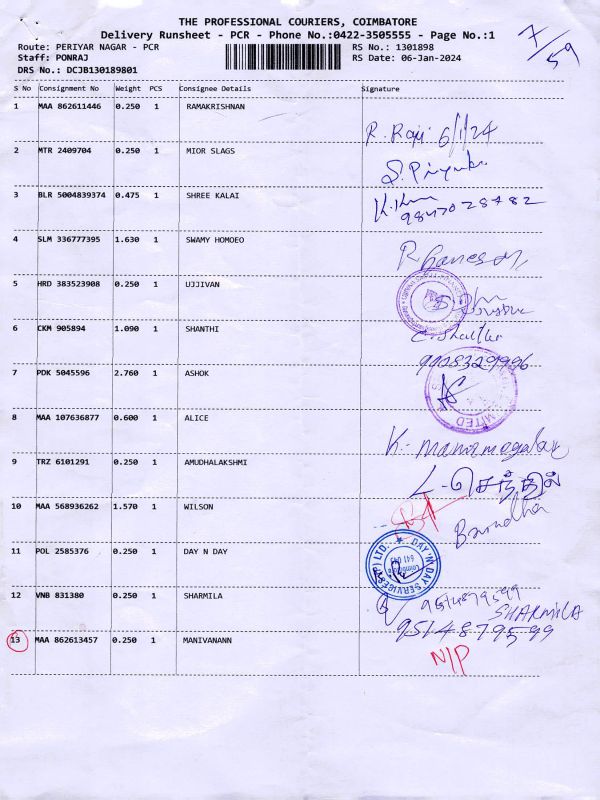 THE PROFESSIONAL COURIERS, COIMBATORE
Delivery Runsheet - PCR - Phone No.:0422-3505555 - Page No.:1
7/59
Route: PERIYAR NAGAR - PCR
RS No.: 1301898
Staff: PONRAJ
RS Date: 06-Jan-2024
DRS No.: DCJB130189801
S No Consignment No Weight PCS Consignee Details Signature
1 MAA 862611446 0.250 1 RAMAKRISHNAN
R. Raji 6/1/24
2 MTR 2409704 0.250 1 MIOR SLAGS
S. Priyanka
3 BLR 5004839374 0.475 1 SHREE KALAI
9847028482
4 SLM 336777395 1.630 1 SWAMY HOMOEO
R Ganesan
5 HRD 383523908 0.250 1 UJJIVAN
6 CKM 905894 1.090 1 SHANTHI
7 PDK 5045596 2.760 1 ASHOK
LIMITED
8 MAA 107636877 0.600 1 ALICE
K. Manimegalai
9 TRZ 6101291 0.250 1 AMUDHALAKSHMI
செந்தில்
10 MAA 568936262 1.570 1 WILSON
11 POL 2585376 0.250 1 DAY N DAY
DAY 'N' DAY SERVICES (P) LTD.
12 VNB 831380 0.250 1 SHARMILA
SHARMILA
9514879599
13 MAA 862613457 0.250 1 MANIVANANN
N/P